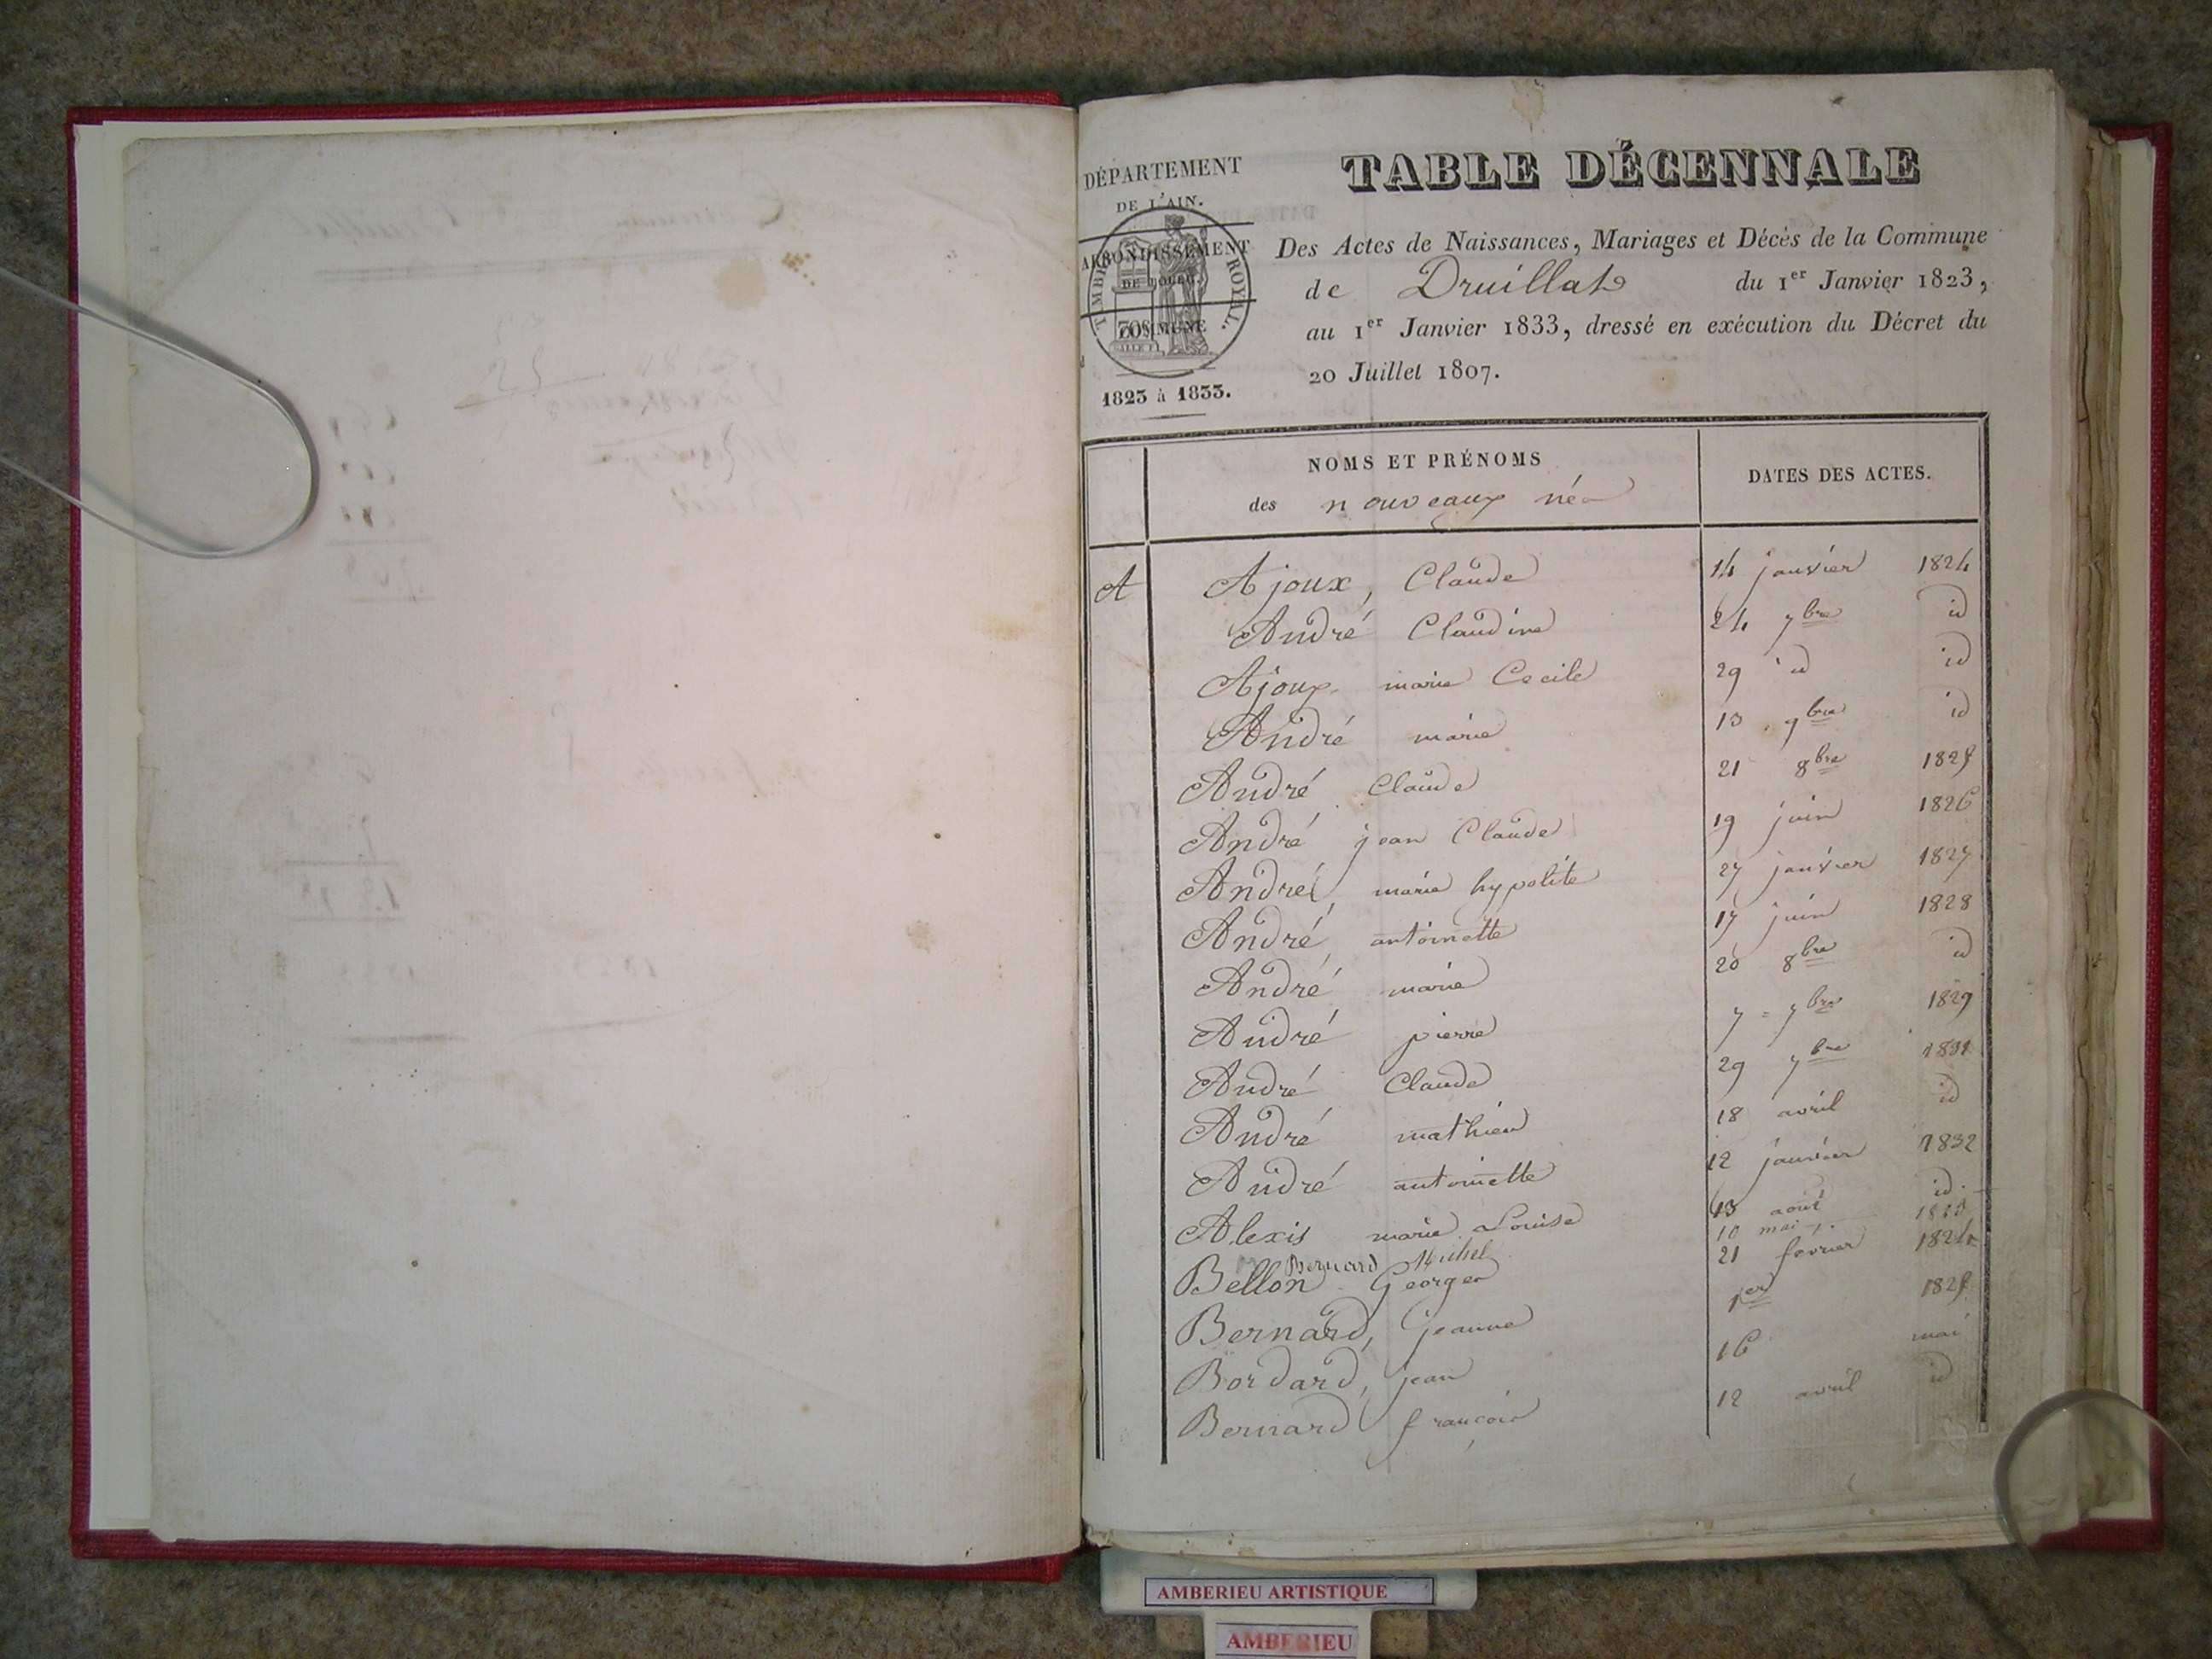 DÉPARTEMENT
DE L'AIN.
ARRONDISSEMENT
DE BOURG.
COMMUNE
d
TIMBRE ROYAL.
1823 à 1833.
TABLE DÉCENNALE
Des Actes de Naissances, Mariages et Décès de la Commune
de Druillat du 1er Janvier 1823,
au 1er Janvier 1833, dressé en exécution du Décret du
20 Juillet 1807.
NOMS ET PRÉNOMS
des nouveaux nés
DATES DES ACTES.
A Ajoux, Claude 14 janvier 1824
André Claudine 24 7bre id
Ajoux marie Cecile 29 id id
André marie 13 9bre id
André Claude 21 8bre 1825
André jean Claude 19 juin 1826
André, marie hypolite 27 janvier 1827
André, antoinette 17 juin 1828
André, marie 20 8bre id
André pierre 7 = 7bre 1829
André Claude 29 7bre 1831
André mathieu 18 avril id
André antoinette 12 janvier 1832
Alexis marie Louise 13 août id.
Bernard Michel 10 mai 1823
Bellon George 21 février 1824
Bernard, jeanne 1er 1825
Bordard, jean 16 mai
Bernard françois 12 avril id
AMBERIEU ARTISTIQUE
AMBERIEU